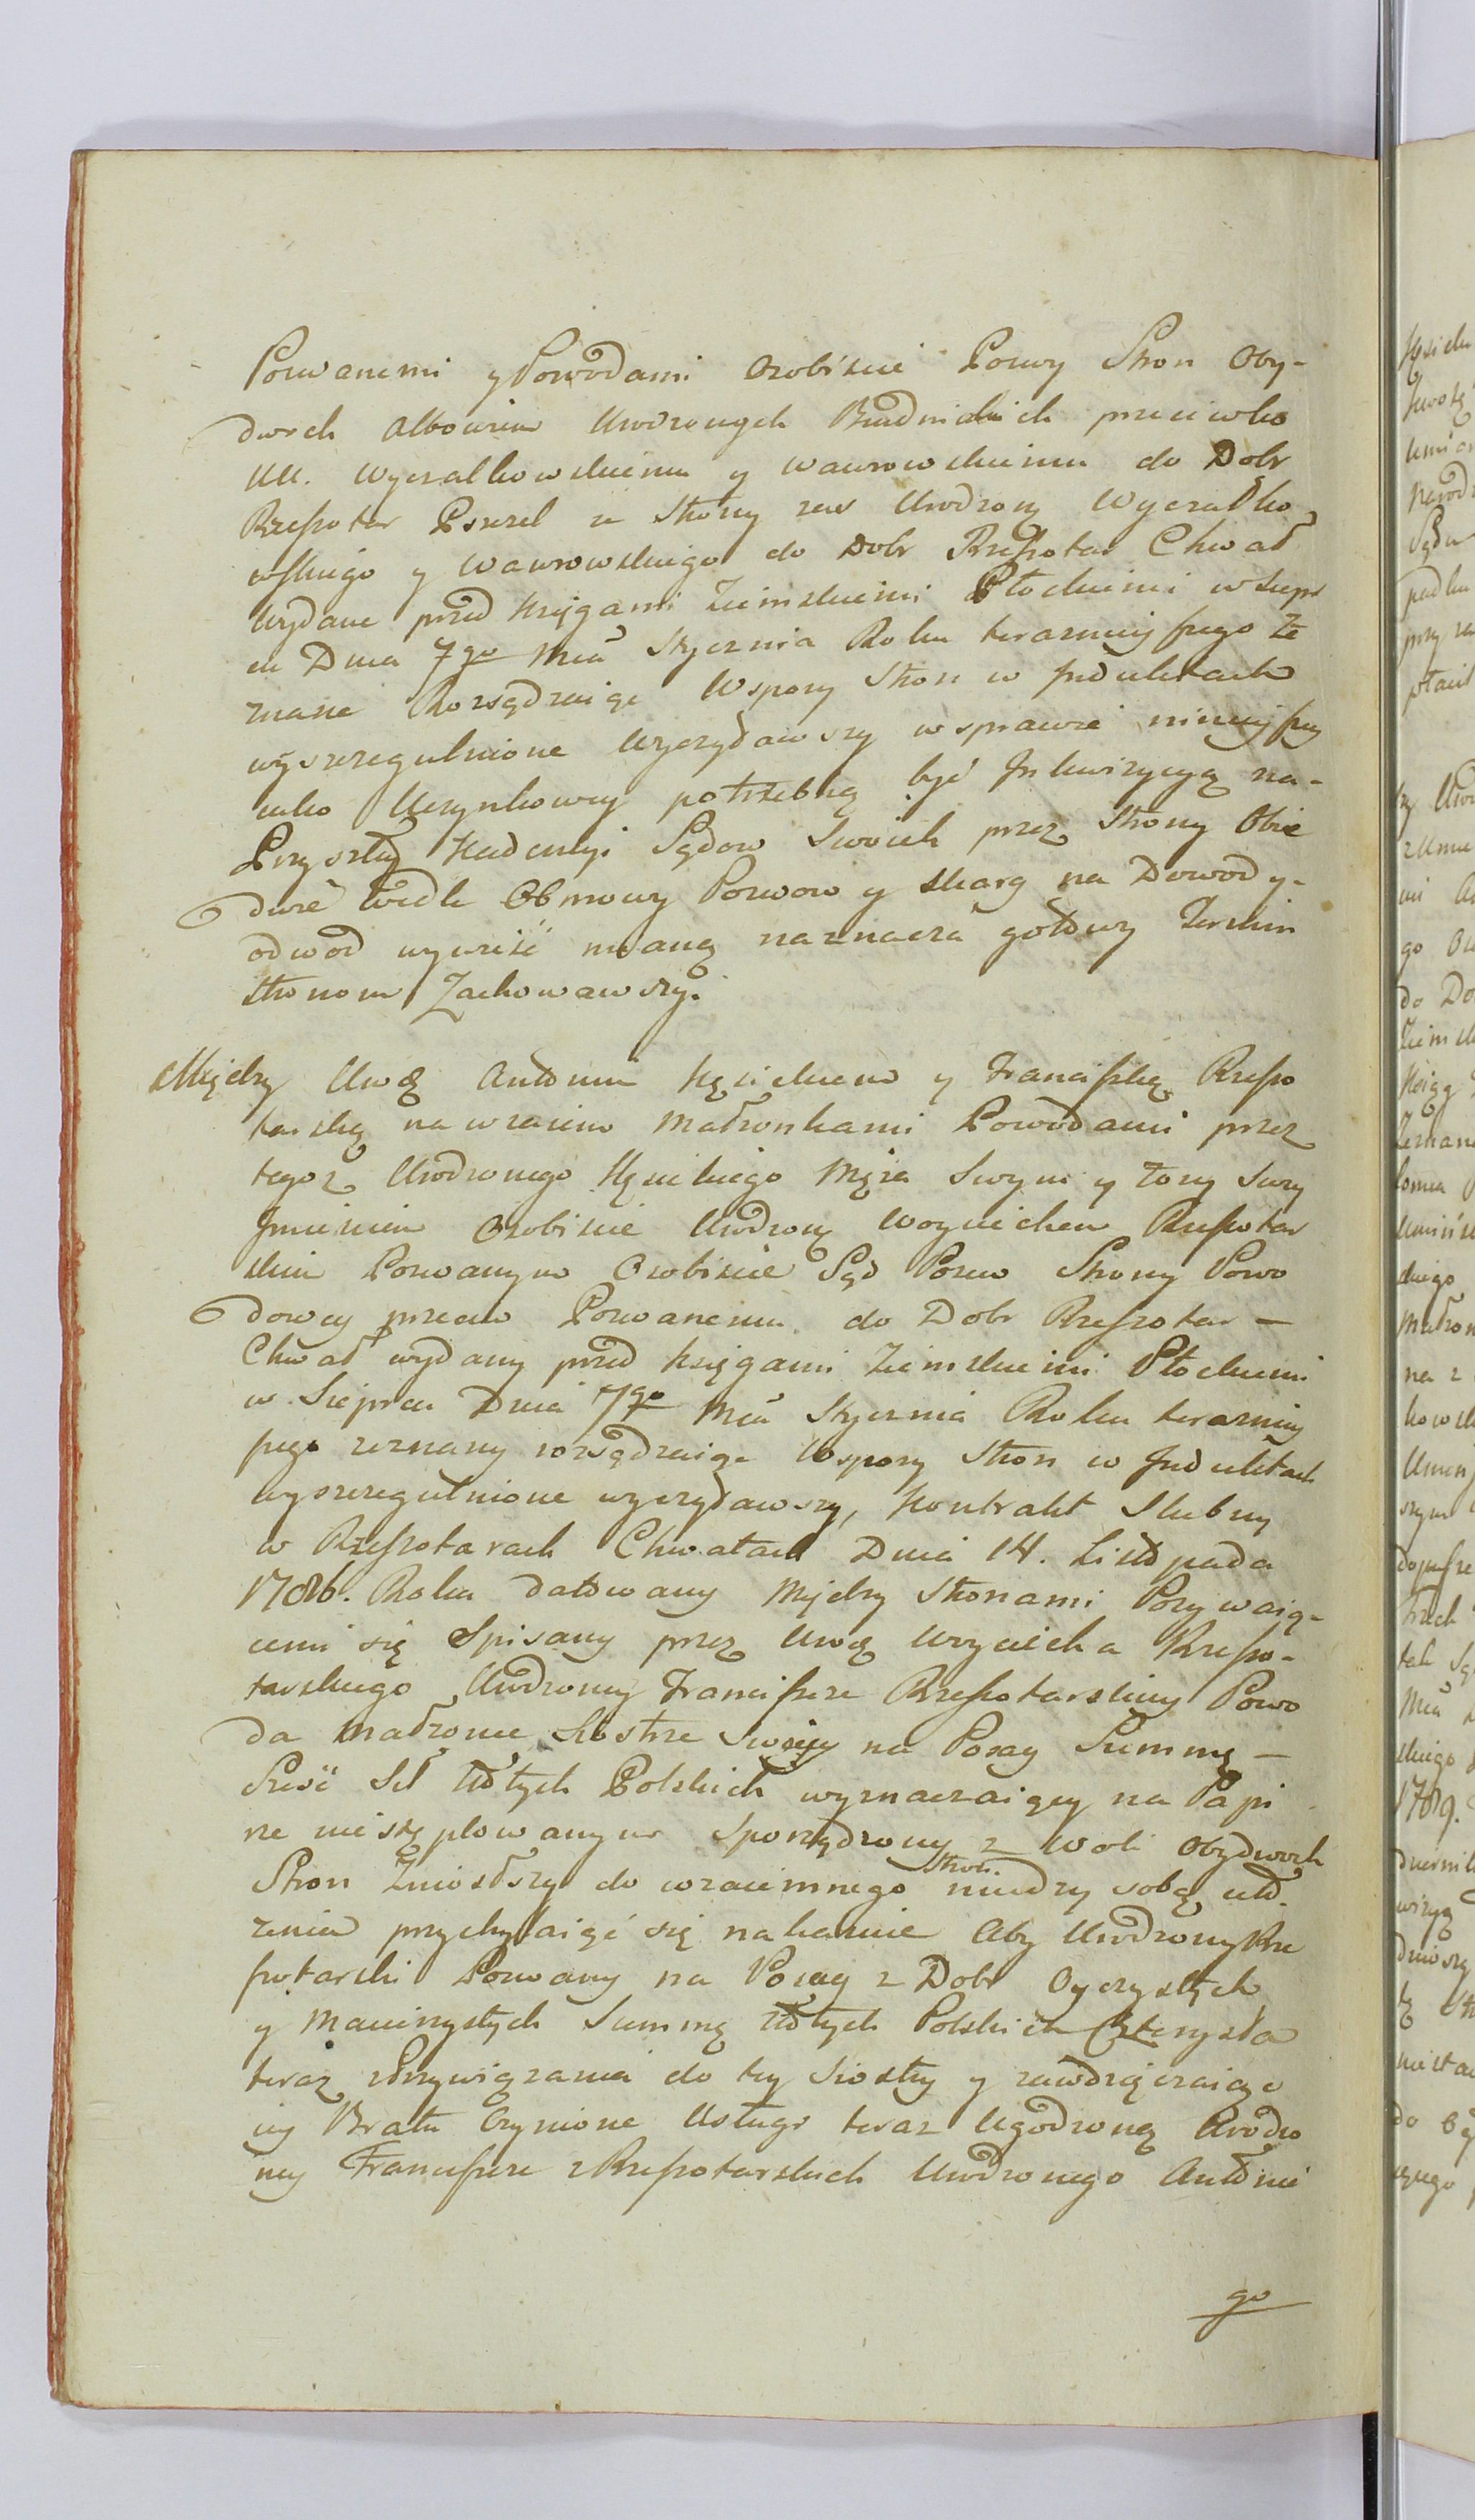 Pozwanemi y Powodami Osobiscie Pozwy Stron Oby-
dwoch albowiem Urodzonych Budnickich przeciwko
UU. Wyczalkowskiemu y Wawrowskiemu do Dobr
Rzeszotar Pszczel ze Strony zas Urodzony Wyczałko
wskiego y Wawrowskiego do Dobr Rzeszotar Chwał
Wydane przed Xięgami Ziemskiemi Płockiemi w Siepr
cu Dnia 7go Mca Stycznia Roku teraznieyszego Ze
znane Rozsądzaiąc Wspory Stron w Induktach
wyszczegulnione Wyczytawszy w sprawie ninieyszey
iako Uczynkowey potrzebną być Inkwizycyą na-
Przyszłey Kadencyi Sądow Swoich przez Strony Obie
dwie wedle Obmowy Pozwow y skarg na Dowod y-
odwod wywieść maiącą naznacza gotowy Termin
Stronom Zachowawszy.
Między Urodz Antonim Kęsickiem y Franciszką Rzeszo
tarską na wzaiem Małżonkami Powodami przez
tegoż Urodzonego Kęsickiego Męża Swym y Zony Swey
Imieniem Osobiscie Urodzony Woyciechem Rzeszotar
skim Pozwanym Osobiscie Sąd Pozew Strony Powo
dowey przeciw Pozwanemu do Dobr Rzeszotar —
Chwał wydany przed Księgami Ziemskiemi Płockiemi
w Siepcu Dnia 7go Mca Stycznia Roku terazniey
szego zeznany rozsądzaiąc Wspory Stron w Induktach
wyszczegulnione wyczytawszy, Kontrakt Slubny
w Rzeszotarach Chwałach Dnia 14. Listopada
1786. Roku datowany Między Stronami Pozywaią-
cemi się Spisany przez Urodz Woyciecha Rzeszo-
tarskiego Urodzoney Franciszce Rzeszotarskiey Powo
da Małzonce Siostrze Swoiey na Posag Summę —
Szesć Set Złotych Polskich wyznaczaiący na Papi
rze niestęplowanym Sporządzony z woli Obydwoch
Stron Zniosłszy do wzaiemnego Stron. miedzy sobą uło
zenia przychylaiąc się nakazuie Aby Urodzony Rze
szotarski Pozwany na Posag z Dobr Oyczystych
y Macierzystych Summę Złotych Polskich Czterysta
teraz z Przywiązania do tey Siostry y zawdzięczaiąc
iey Bratu Czynione Usługi teraz Ugodzoną Urodzo
ney Franciszce z Rzeszotarskich Urodzonego Antonie
go